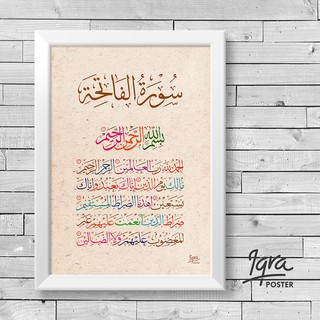 سُورَةُ الفَاتِحَة
بِسْمِ اللهِ الرَّحْمٰنِ الرَّحِيمِ
الحمد لله رب العالمين الرحمن الرحيم
مالك يوم الدين إياك نعبد وإياك
نستعين اهدنا الصراط المستقيم
صراط الذين أنعمت عليهم غير
المغضوب عليهم ولا الضالين
Iqra
Iqra
POSTER